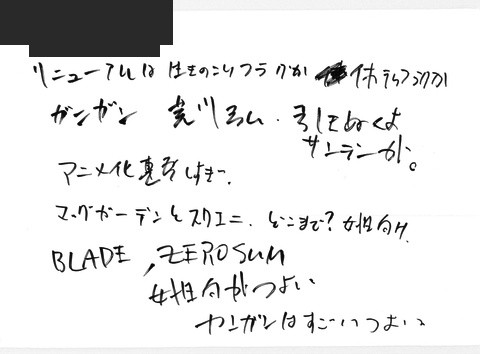 リニューアルは 生きのこりフラグか 休刊フラグか
ガンガン 荒川弘. 引きぬくよ
サンデーが。
アニメ化
マッグガーデンとスクエニ. どこまで? 女性向け
BLADE, ZEROSUM
女性向がつよい
ヤンガンはすごいつよい